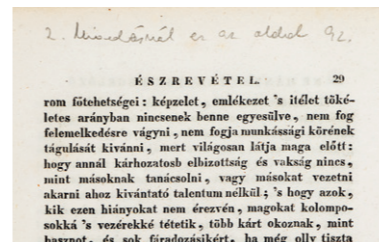 2. kiadásnál ez az oldal 92.
ÉSZREVÉTEL. 29
rom főtehetségei: képzelet, emlékezet 's itélet töké-
letes arányban nincsenek benne egyesülve, nem fog
felemelkedésre vágyni, nem fogja munkássági körének
tágulását kivánni, mert világosan látja maga előtt:
hogy annál kárhozatosb elbizottság és vakság nincs,
mint másoknak tanácsolni, vagy másokat vezetni
akarni ahoz kivántató talentum nélkül; 's hogy azok,
kik ezen hiányokat nem érezvén, magokat kolompo-
sokká 's vezérekké tétetik, több kárt okoznak, mint
hasznot, és sok fáradozásikért, ha még olly tiszta